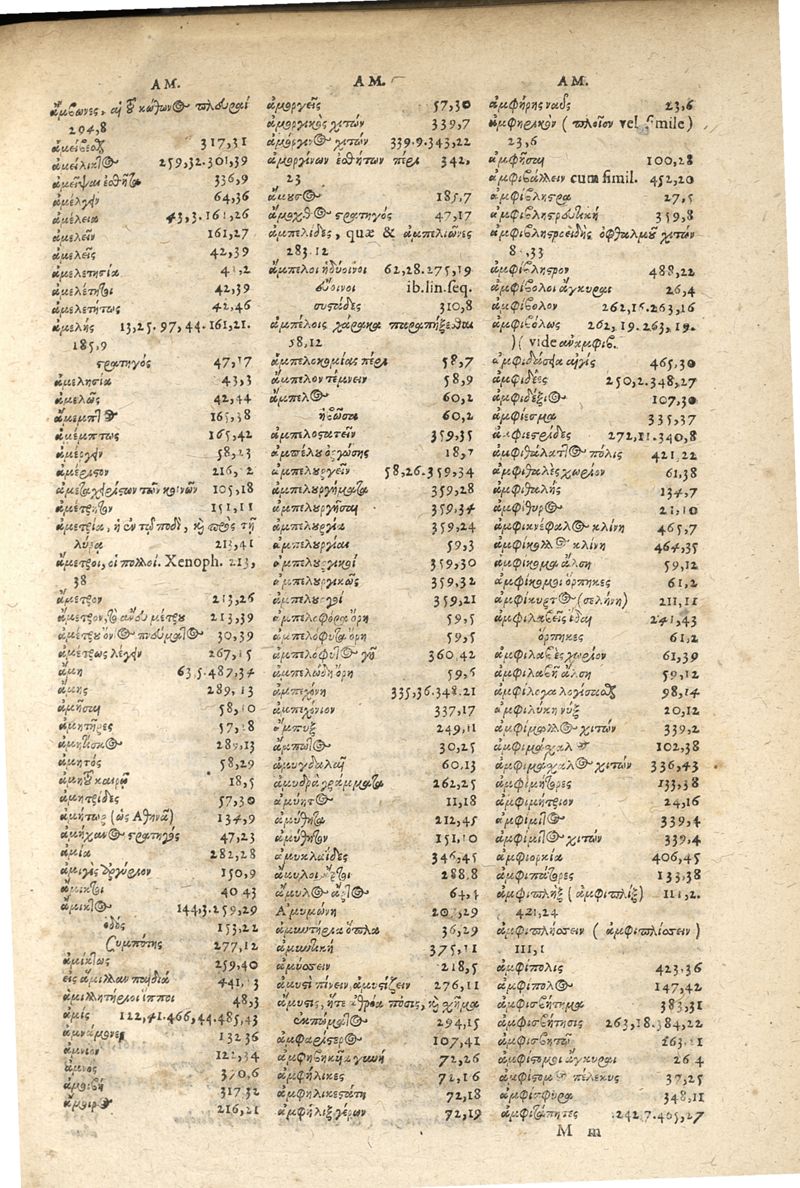 AM.
ἄμβωνες, αἱ τοῦ κώθωνος πλευραί
294,8
ἀμείβεσθαι 317,31
ἀμείλικτος 259,32.301,39
ἀμεῖψαι ἐσθῆτα 336,9
ἀμέλγειν 64,36
ἀμέλεια 43,3.161,26
ἀμελεῖν 161,27
ἀμελεῖς 42,39
ἀμελετησία
ἀμελέτητοι 42,39
ἀμελετήτως 42,46
ἀμελής 13,25.97,44.161,21.
185,9
στρατηγός 47,17
ἀμελησία 43,3
ἀμελῶς 42,44
ἄμεμπτος 165,38
ἀμέμπτως 165,42
ἀμέργειν 58,23
ἀμέριστον
ἀμεταχείριστον τῶν κοινῶν 105,18
ἀμέτρητον 151,11
ἀμετρία, ἡ ἐν τῷ ποδί, καὶ πρὸς τῇ
λύρᾳ 213,41
ἄμετροι, οἱ πολλοί. Xenoph. 213,
38
ἄμετρον 213,26
ἄμετρον, τὸ ἄνευ μέτρου 213,39
ἀμέτρου ὄντος πνεύματος 30,39
ἀμέτρως λέγειν 267,15
ἄμη 63,5.487,34
ἄμης 289,13
ἀμῆσαι 58,30
ἀμητῆρες
ἀμητίσκος 289,13
ἀμητός 58,29
ἀμήτου καιρῷ 18,5
ἀμητρίδες 57,30
ἀμήτωρ (ὡς Ἀθηνᾶ) 134,9
ἀμήχανος στρατηγός 47,23
ἀμία 282,28
ἀμιγὲς ἀργύριον 150,9
ἄμικτοι 40 43
ἄμικτος 144,3.259,29
ὁδός 153,22
Συμπότης 277,12
ἀμίκτως 259,40
εἰς ἅμιλλαν παιδιά
ἁμιλλητήριοι ἵπποι 48,3
ἀμίς 122,41.466,44.485,43
ἀμνάμονες 132 36
ἀμνίον 122,34
ἀμνός 370,6
ἀμοιβή 317 32
ἀμοιρος 216,21
AM.
ἀμοργεῖς 57,30
ἀμοργικὸς χιτών 339,7
ἀμόργινος χιτών 339.9.343,22
ἀμοργίνων ἐσθήτων πέρι 342,
23
ἄμουσος 185.7
ἄμοχθος στρατηγός 47,17
ἀμπελίδες, quæ & ἀμπελιῶνες
283.12
ἄμπελοι ἡδύοινοι 62,28.275,19
εὔοινοι ib.lin.seq.
συστάδες 310,8
ἀμπέλοις χάρακα παραπήξασθαι
58,12
ἀμπελοκομίας πέρι 58,7
ἄμπελον τέμνειν 58,9
ἄμπελος 60,2
ἡβῶσα 60,2
ἀμπελοστατεῖν 359,35
ἀμπελουργώσης
ἀμπελουργεῖν 58,26.359,34
ἀμπελουργήματα 359,28
ἀμπελουργῆσαι 359,34
ἀμπελουργία 359,24
ἀμπελουργίαι 59,3
ἀμπελουργικοί 359,30
ἀμπελουργικῶς 359,32
ἀμπελουργοί 359,21
ἀμπελοφόρα ὄρη 59,5
ἀμπελόφυτα ὄρη 59,5
ἀμπελόφυτος γῆ 360,42
ἀμπελώδη ὄρη 59,6
ἀμπεχόνη 335,36.348.21
ἀμπεχόνιον 337,17
ἄμπυξ 249,11
ἄμπωτις 30,25
ἀμυγδαλαῖ 60,13
ἀμυδρὰ γράμματα 262,25
ἀμύητος 11,18
ἀμύθητα 212,45
ἀμύθητον 151,10
ἀμυκλαΐδες 346,45
ἄμυλοι ἄρτοι 288.8
ἄμυλος ἄρτος
Ἀμυμώνη
ἀμυντήρια ὅπλα 36,29
ἀμυντική 375,11
ἀμύσσειν 218,5
ἀμυστὶ πίνειν, ἀμυστίζειν 276,11
ἄμυστις, ἥτε ἀθρόα πόσις, καὶ χῆμα
ἐκπώματος 294,15
ἀμφαρίστερος 107,41
ἀμφηβικὴ ἀγωγή 72,26
ἀμφήλικες 72,16
ἀμφηλικεστάτη 72,18
ἀμφήλιξ γέρων 72,19
AM.
ἀμφήρης ναῦς 23,6
ἀμφηρικόν (πλοῖον vel simile)
23,6
ἀμφῆσαι 100,28
ἀμφιβάλλειν cum simil. 452,20
ἀμφίβληστρα 27,5
ἀμφιβληστρευτική 359,8
ἀμφιβληστροειδὴς ὀφθαλμοῦ χιτών
ἀμφίβληστρον 488,22
ἀμφίβολοι ἄγκυραι 26,4
ἀμφίβολον 262,16.263,16
ἀμφιβόλως 262,19.263,19.
)( vide ἀναμφιβ.
ἀμφιδάσεια αἰγίς 465,30
ἀμφιδέες 250,2.348,27
ἀμφιδέξιος 107,30
ἀμφίεσμα 335,37
ἀμφιεστρίδες 272,11.340,8
ἀμφιθάλαττος πόλις 421,22
ἀμφιθαλὲς χωρίον 61,38
ἀμφιθαλής 134,7
ἀμφίθυρος 21,10
ἀμφικνέφαλος κλίνη 465,7
ἀμφίκολλος κλίνη 464,35
ἀμφίκομα ἄλση 59,12
ἀμφίκομοι ὄρπηκες 61,2
ἀμφίκυρτος (σελήνη) 211,11
ἀμφιλαφεῖς 241,43
ὄρπηκες 61,2
ἀμφιλαφὲς χωρίον 61,39
ἀμφιλαφῆ ἄλση 59,12
ἀμφίλογα λογίσασθαι 98,14
ἀμφιλύκη νύξ 20,12
ἀμφίμαλλος χιτών 339,2
ἀμφιμάσχαλος 102,38
ἀμφιμάσχαλος χιτών 336,43
ἀμφιμήτορες 133,38
ἀμφιμήτριον 24,16
ἀμφίμιτος 339,4
ἀμφίμιτος χιτών 339,4
ἀμφιορκία 406,45
ἀμφιπάτορες 133,38
ἀμφιπλήξ (ἀμφιπλίξ) 111,2.
421,24
ἀμφιπλήσσειν (ἀμφιπλίσσειν)
111,1
ἀμφίπολις 423,36
ἀμφίπολος 147,42
ἀμφισβήτημα 383,31
ἀμφισβήτησις 263,18.384,22
ἀμφισβητῶ
ἀμφίστομοι ἄγκυραι 26 4
ἀμφίστομος πέλεκυς 37,25
ἀμφισφύρα 348,11
ἀμφιτάπητες 242,7.465,27
M m